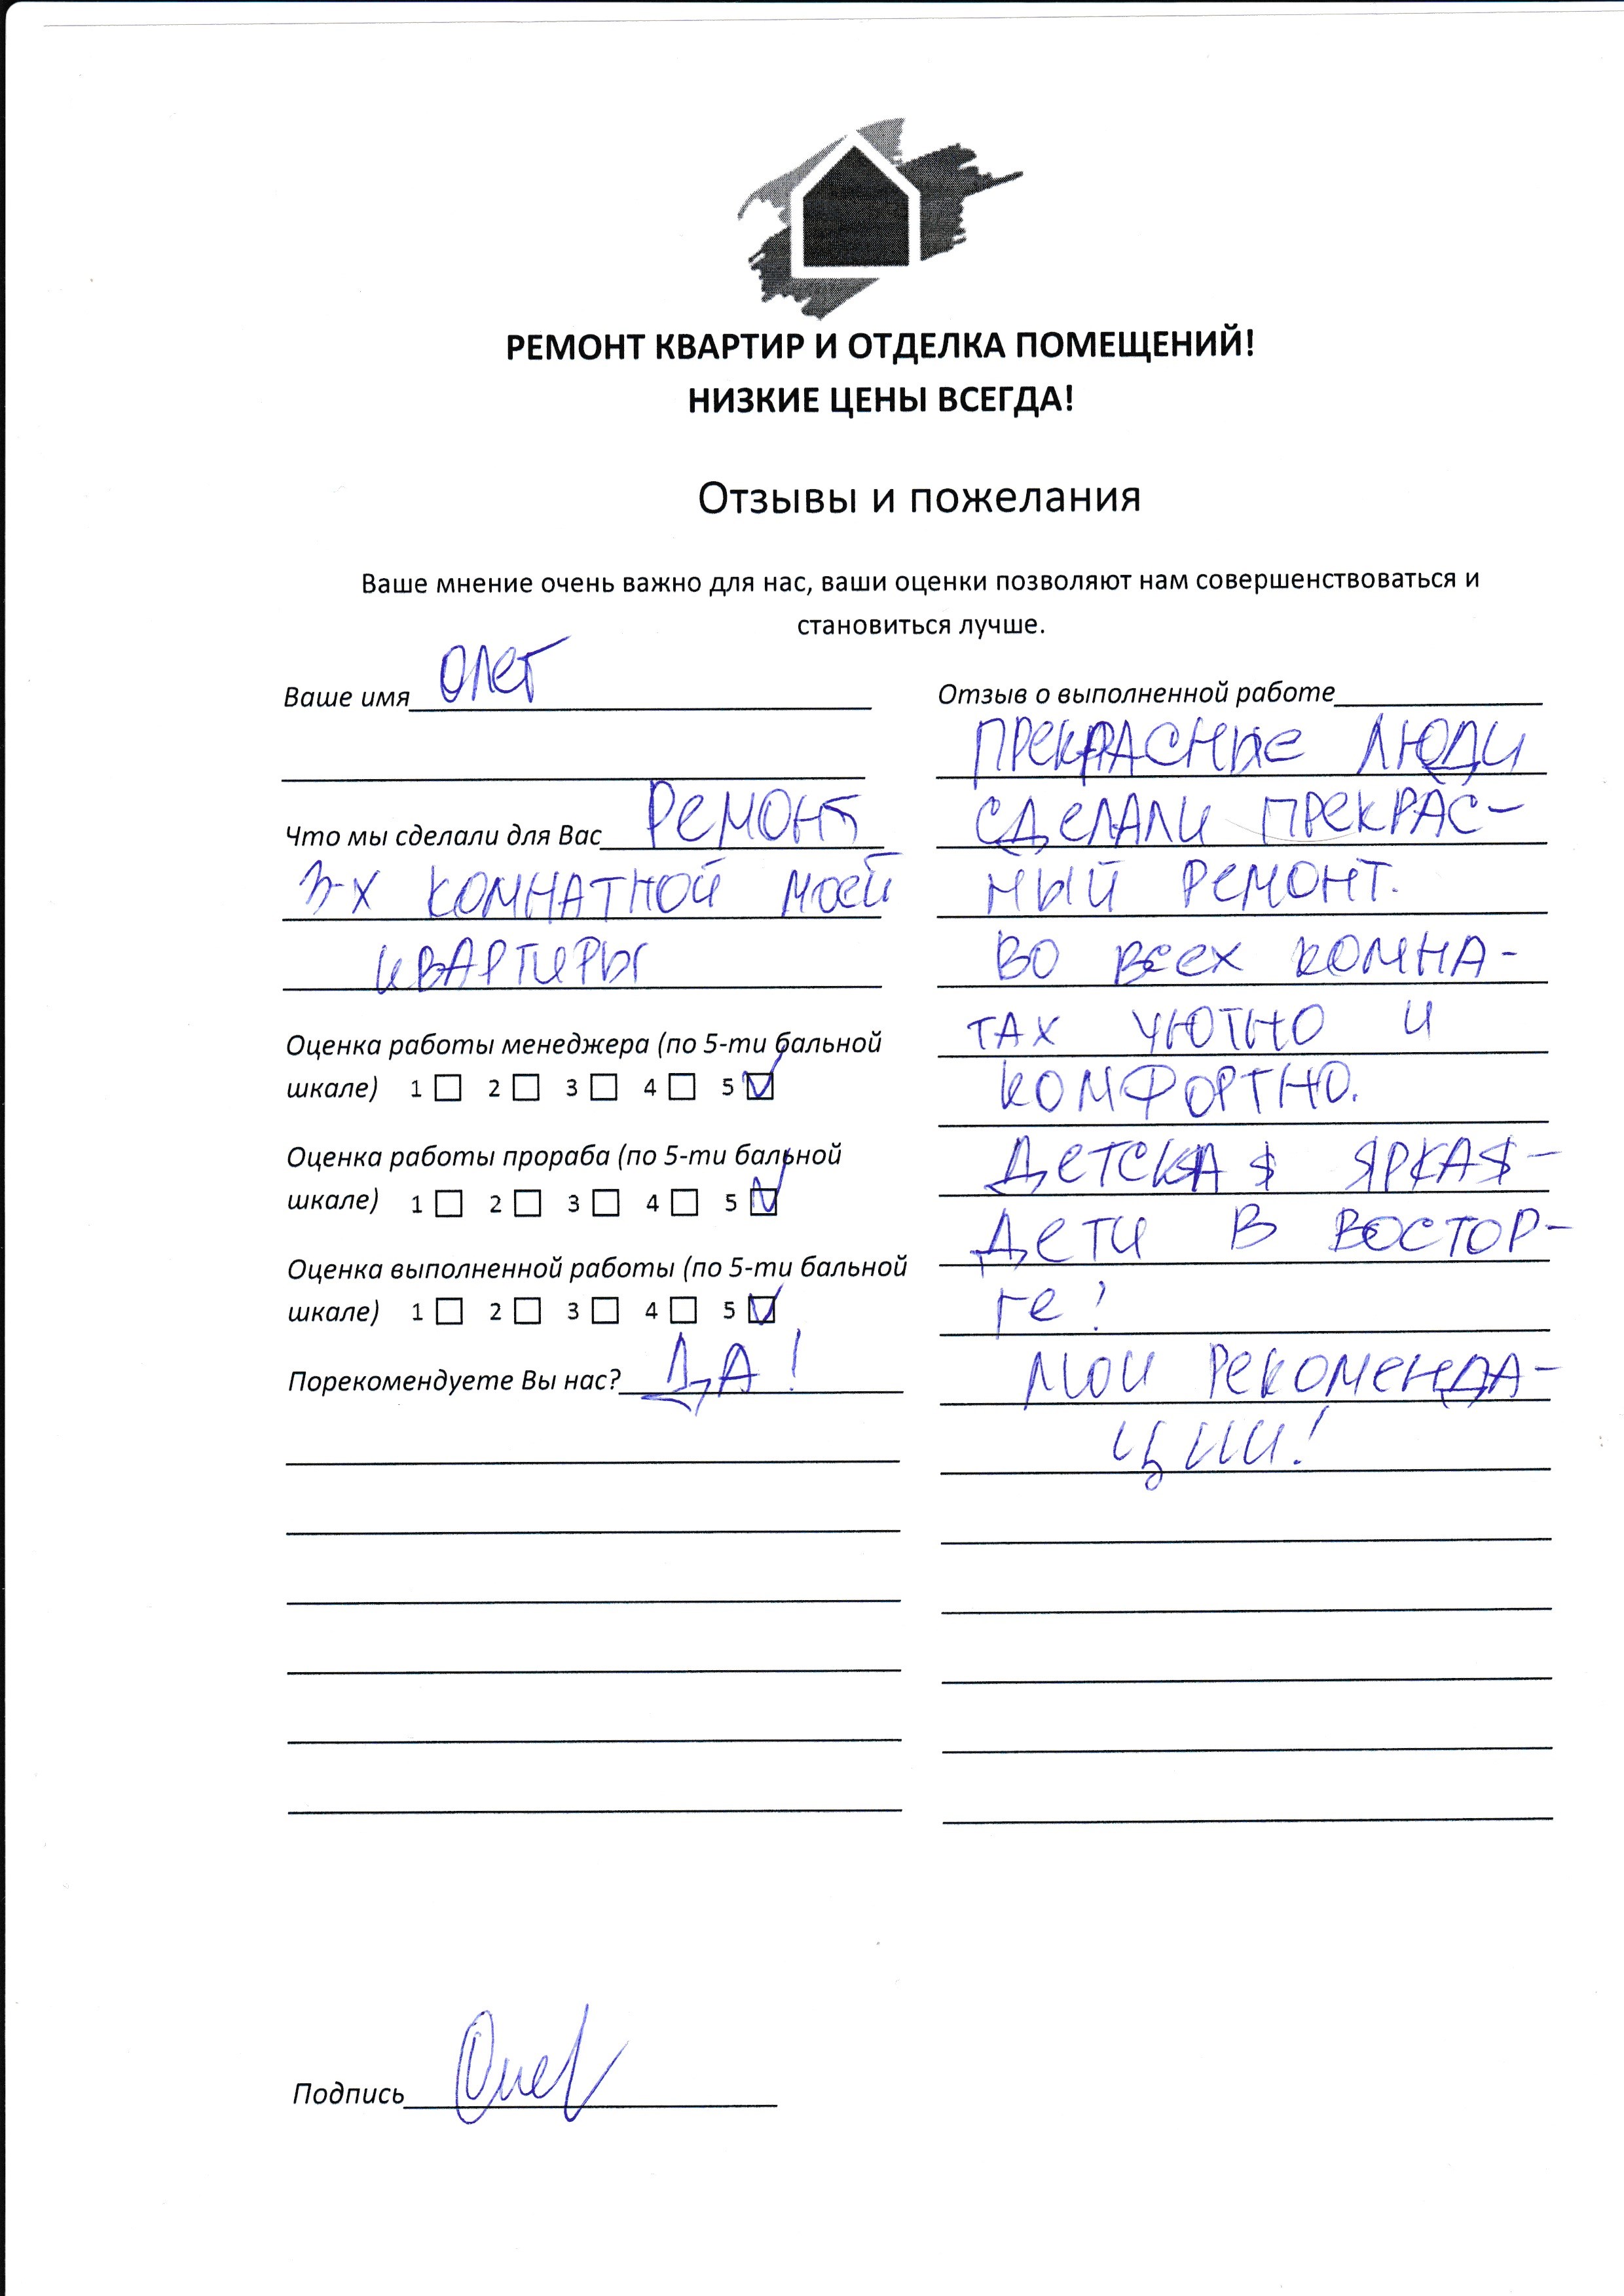 РЕМОНТ КВАРТИР И ОТДЕЛКА ПОМЕЩЕНИЙ!
НИЗКИЕ ЦЕНЫ ВСЕГДА!
Отзывы и пожелания
Ваше мнение очень важно для нас, ваши оценки позволяют нам совершенствоваться и
становиться лучше.
Ваше имя Олег
Что мы сделали для Вас Ремонт
3-х комнатной моей
квартиры
Оценка работы менеджера (по 5-ти бальной
шкале) 1 ☐ 2 ☐ 3 ☐ 4 ☐ 5 ☑
Оценка работы прораба (по 5-ти бальной
шкале) 1 ☐ 2 ☐ 3 ☐ 4 ☐ 5 ☑
Оценка выполненной работы (по 5-ти бальной
шкале) 1 ☐ 2 ☐ 3 ☐ 4 ☐ 5 ☑
Порекомендуете Вы нас? ДА!
Отзыв о выполненной работе
Прекрасные люди
сделали прекрас-
ный ремонт.
Во всех комна-
тах уютно и
комфортно.
Детская яркая -
дети в востор-
ге!
Мои рекоменда-
ции!
Подпись Олег